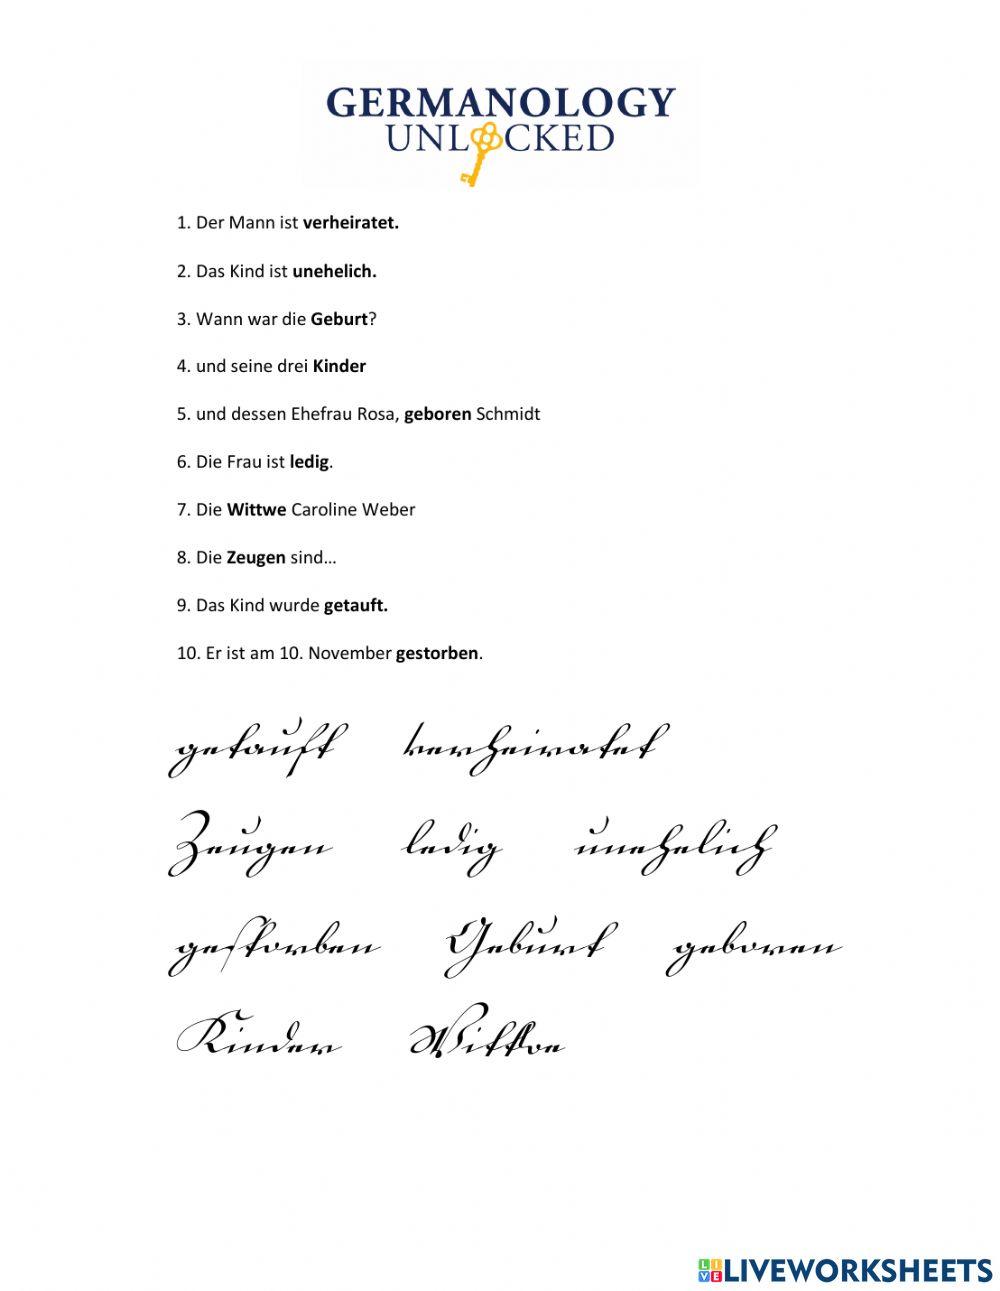 GERMANOLOGY
UNLOCKED
1. Der Mann ist verheiratet.
2. Das Kind ist unehelich.
3. Wann war die Geburt?
4. und seine drei Kinder
5. und dessen Ehefrau Rosa, geboren Schmidt
6. Die Frau ist ledig.
7. Die Wittwe Caroline Weber
8. Die Zeugen sind…
9. Das Kind wurde getauft.
10. Er ist am 10. November gestorben.
getauft verheiratet
Zeugen ledig unehelich
gestorben Geburt geboren
Kinder Wittwe
LIVE LIVEWORKSHEETS